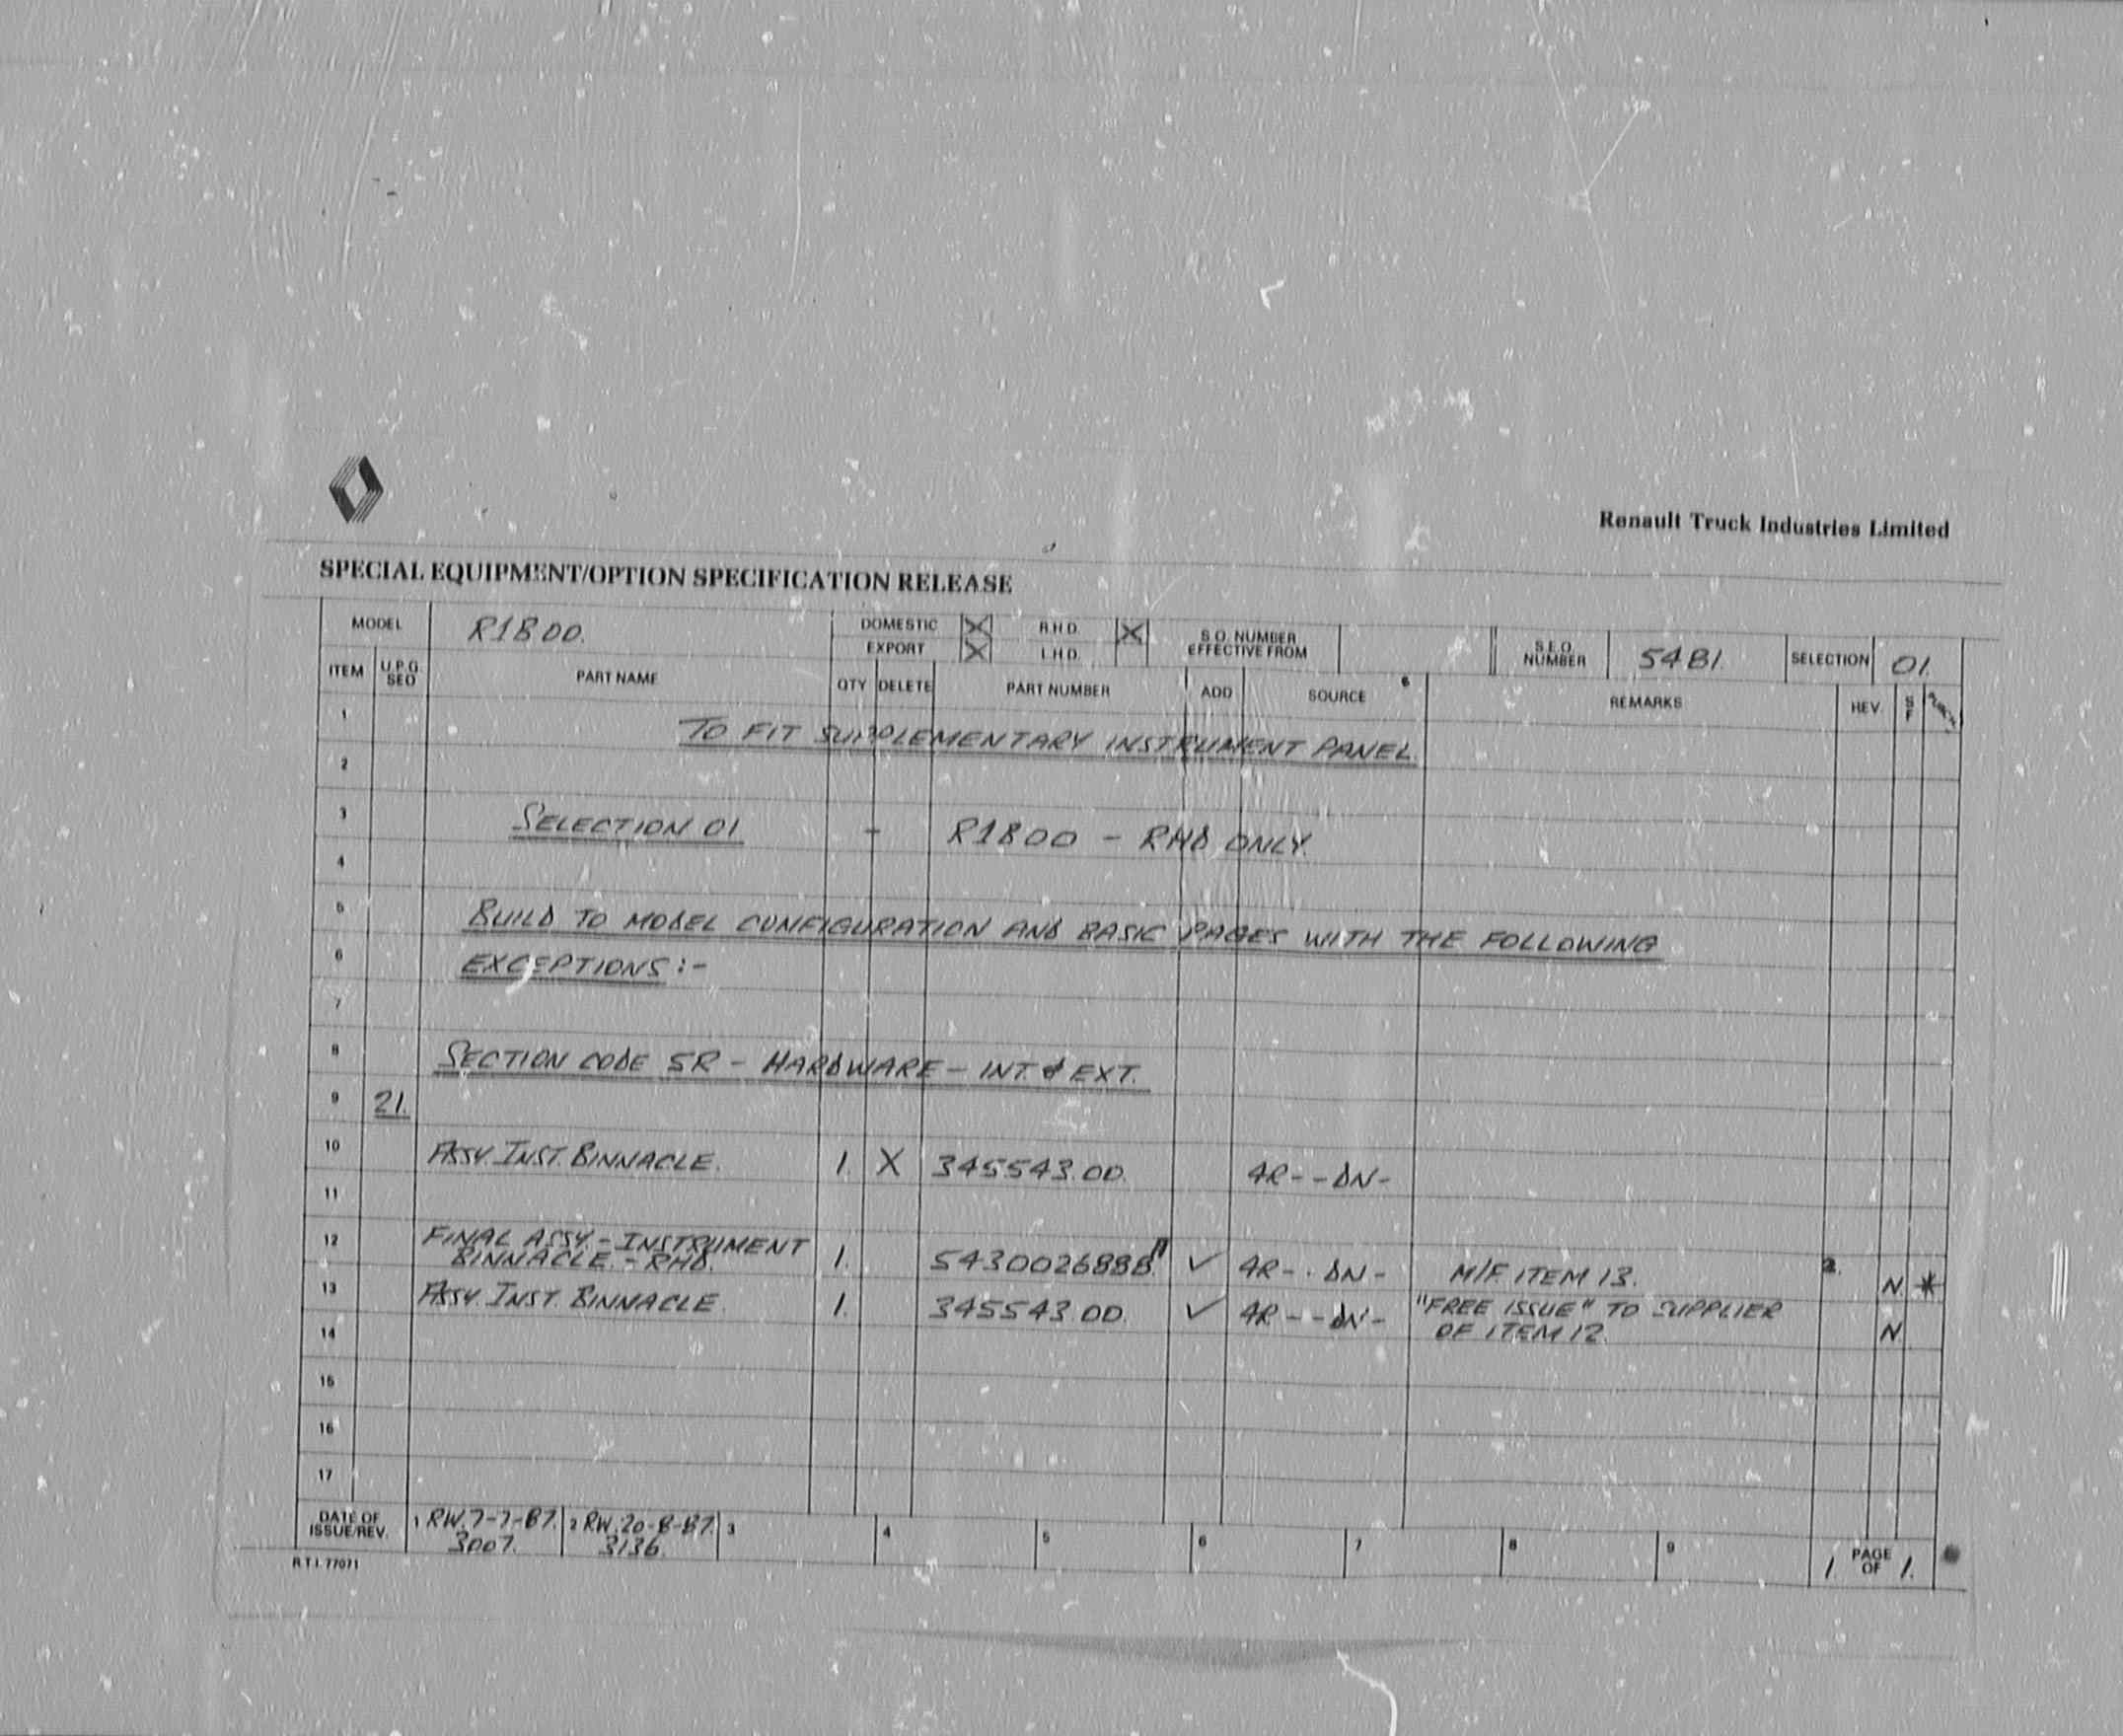 Renault Truck Industries Limited
SPECIAL EQUIPMENT/OPTION SPECIFICATION RELEASE
MODEL R1800. DOMESTIC X R.H.D. X S.O. NUMBER EFFECTIVE FROM S.E.O. NUMBER 5481. SELECTION 01.
EXPORT X L.H.D.
ITEM U.P.G. SEO PART NAME QTY DELETE PART NUMBER ADD SOURCE REMARKS REV. S F
1 TO FIT SUPPLEMENTARY INSTRUMENT PANEL.
2
3 SELECTION 01 - R1800 - RHD ONLY.
4
5 BUILD TO MODEL CONFIGURATION AND BASIC PAGES WITH THE FOLLOWING
6 EXCEPTIONS:-
7
8 SECTION CODE 5R - HARDWARE - INT. & EXT.
9 21.
10 ASSY. INST. BINNACLE. 1. X 345543.00. 4R--DN-
11
12 FINAL ASSY. - INSTRUMENT
BINNACLE. - RHD. 1. 5430026888 ✓ 4R--DN- M/F ITEM 13. 2. N *
13 ASSY. INST. BINNACLE. 1. 345543.00. ✓ 4R--DN- "FREE ISSUE" TO SUPPLIER N
14 OF ITEM 12.
15
16
17
DATE OF ISSUE/REV. 1 RW. 7-7-87. 2 RW. 20-8-87. 3 4 5 6 7 8 9 1. PAGE OF 1.
3007. 3136.
R.T.I. 77071